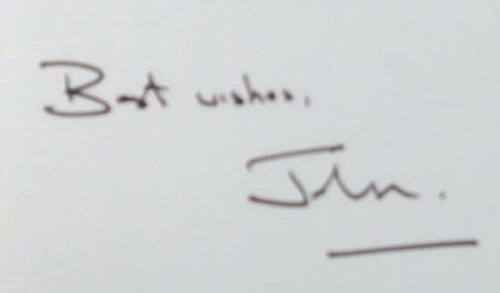 Best wishes,
John.